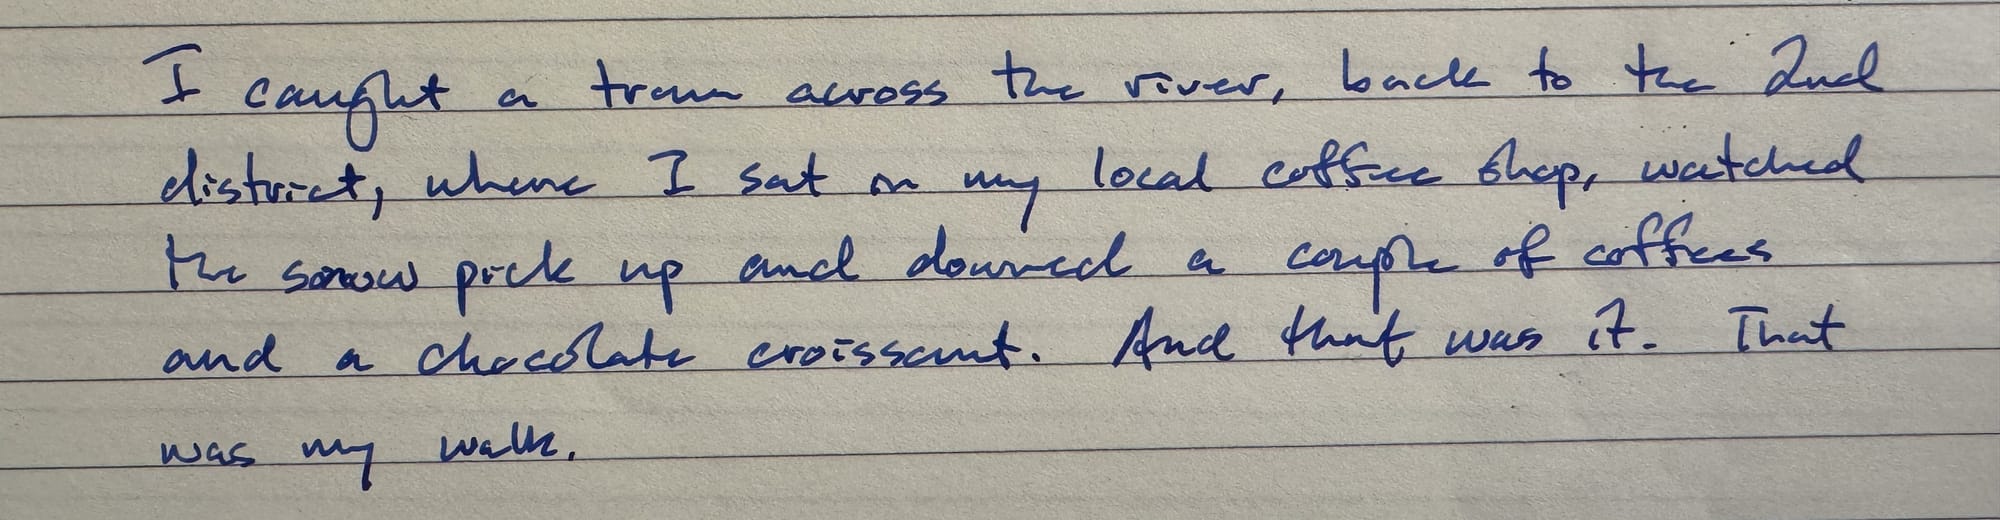 I caught a tram across the river, back to the 2nd
district, where I sat in my local coffee shop, watched
the snow pick up and downed a couple of coffees
and a chocolate croissant. And that was it. That
was my walk.